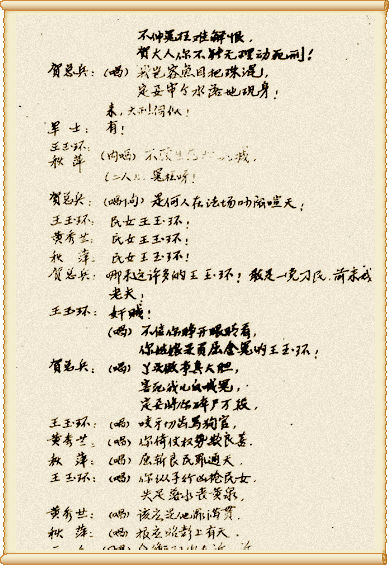 不仲冤枉难解恨，
贺大人你不能无理动死刑！
贺总兵：（唱）我岂容鱼目把珠混，
定要审个水落地现身！
来，大刑伺候！
军 士：有！
王玉环：
秋 萍：（内唱）不顾生死
（二人） 冤枉呀！
贺总兵：（唱） 是何人在法场吵闹喧天！
王玉环：民女王玉环！
黄秀兰：民女王玉环！
秋 萍：民女王玉环！
贺总兵：哪来这许多的王玉环！敢是一党刁民，前来戏
老夫！
王玉环：奸贼！
（唱）不信你睁开眼睛看，
你 是负屈含冤的王玉环！
贺总兵：（唱） 做事真大胆，
喊冤，
定要将你碎尸万段，
王玉环：（唱）咬牙切齿骂狗官，
黄秀兰：（唱）你倚仗权势欺良善，
秋 萍：（唱）屈斩良民罪通天，
王玉环：（唱）你纵子行凶抢民女，
失足落水丧黄泉，
黄秀兰：（唱）该应是他
秋 萍：（唱）报应昭彰上有天，